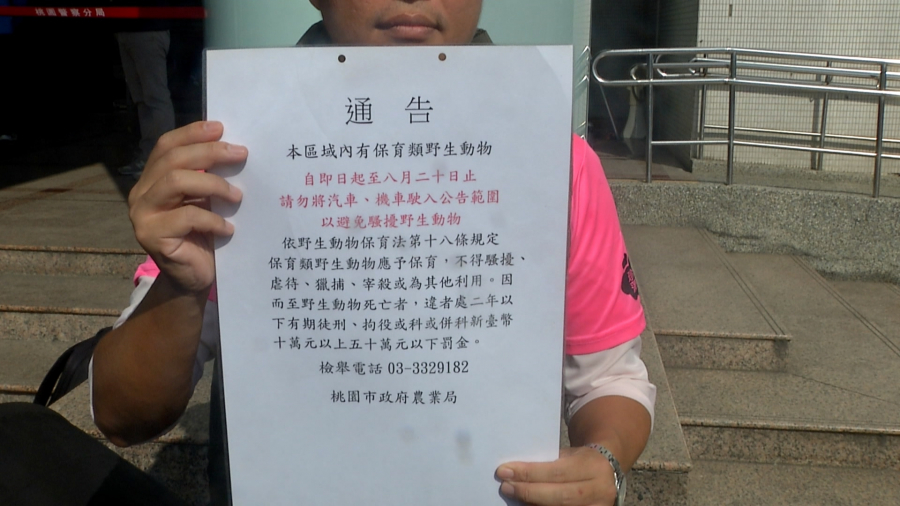 桃園警察分局
通告
本區域內有保育類野生動物
自即日起至八月二十日止
請勿將汽車、機車駛入公告範圍
以避免騷擾野生動物
依野生動物保育法第十八條規定
保育類野生動物應予保育，不得騷擾、
虐待、獵捕、宰殺或為其他利用。因
而至野生動物死亡者，違者處二年以
下有期徒刑、拘役或科或併科新臺幣
十萬元以上五十萬元以下罰金。
檢舉電話 03-3329182
桃園市政府農業局